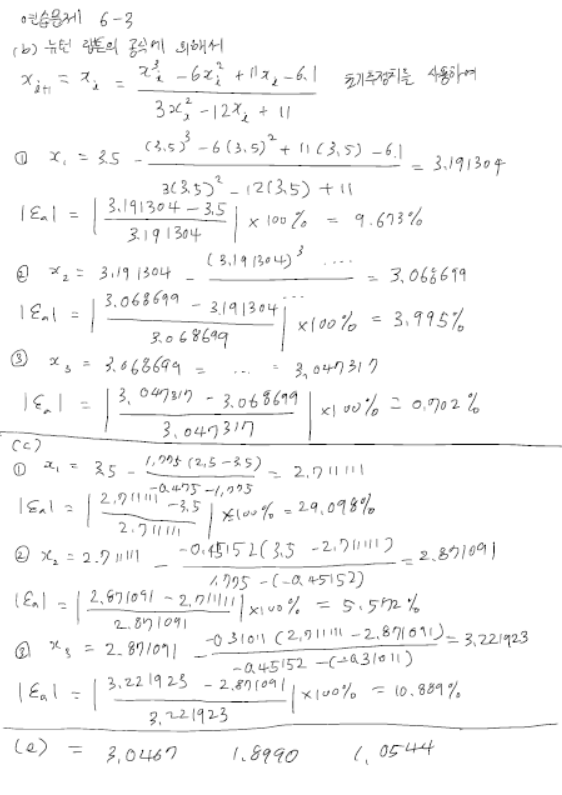 연습문제 6-3
(b) 뉴턴 랩슨의 공식에 의해서
x_{i+1} = x_i = \frac{x_i^3 - 6x_i^2 + 11x_i - 6.1}{3x_i^2 - 12x_i + 11} 초기추정치를 사용하여
① x_1 = 3.5 - \frac{(3.5)^3 - 6(3.5)^2 + 11(3.5) - 6.1}{3(3.5)^2 - 12(3.5) + 11} = 3.191304
|ε_a| = |\frac{3.191304 - 3.5}{3.191304}| × 100% = 9.673%
② x_2 = 3.191304 - \frac{(3.191304)^3 ....}{...} = 3.068699
|ε_a| = |\frac{3.068699 - 3.191304}{3.068699}| ×100% = 3.995%
③ x_3 = 3.068699 = ... = 3.047317
|ε_a| = |\frac{3.047317 - 3.068699}{3.047317}| ×100% = 0.702%
(c)
① x_1 = 3.5 - \frac{1.775(2.5-3.5)}{-0.475-1.775} = 2.711111
|ε_a| = |\frac{2.711111 - 3.5}{2.711111}| ×100% = 29.098%
② x_2 = 2.711111 - \frac{-0.45152(3.5 - 2.711111)}{1.775 - (-0.45152)} = 2.871091
|ε_a| = |\frac{2.871091 - 2.711111}{2.871091}| ×100% = 5.572%
③ x_3 = 2.871091 - \frac{-0.31011(2.711111 - 2.871091)}{-0.45152 - (-0.31011)} = 3.221923
|ε_a| = |\frac{3.221923 - 2.871091}{3.221923}| ×100% = 10.889%
(e) = 3.0467 1.8990 1.0544